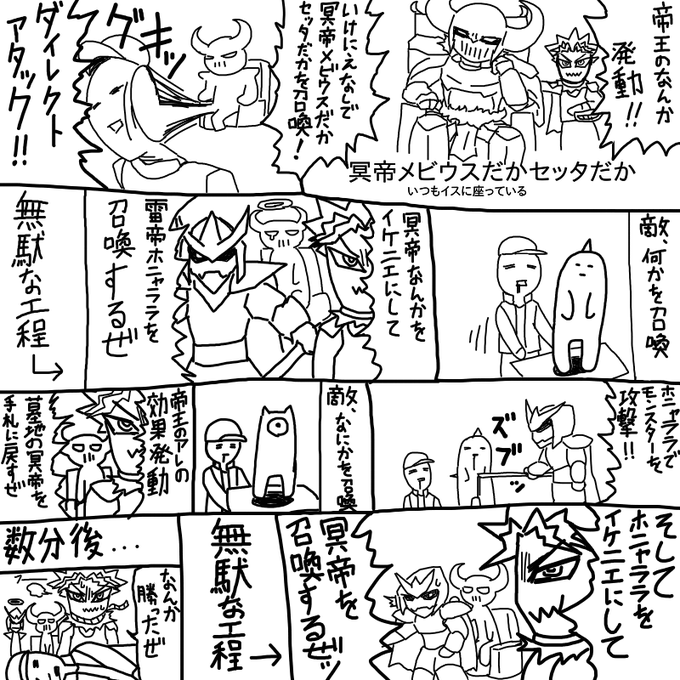 帝王のなんか
発動!!
冥帝メビウスだかセッタだか
いつもイスに座っている
いけにえなしで
冥帝メビウスだか
セッタだかを召喚!
グキッ
ダイレクト
アタック!!
敵、何かを召喚
冥帝なんかを
イケニエにして
雷帝ホニャララを
召喚するぜ
無駄な工程
ホニャララで
モンスターを
攻撃!!
ズブッ
敵、なにかを召喚
帝王のアレの
効果発動
墓地の冥帝を
手札に戻すぜ
そして
ホニャララを
イケニエにして
冥帝を
召喚するぜッ
無駄な工程
数分後...
なんか
勝ったぜ